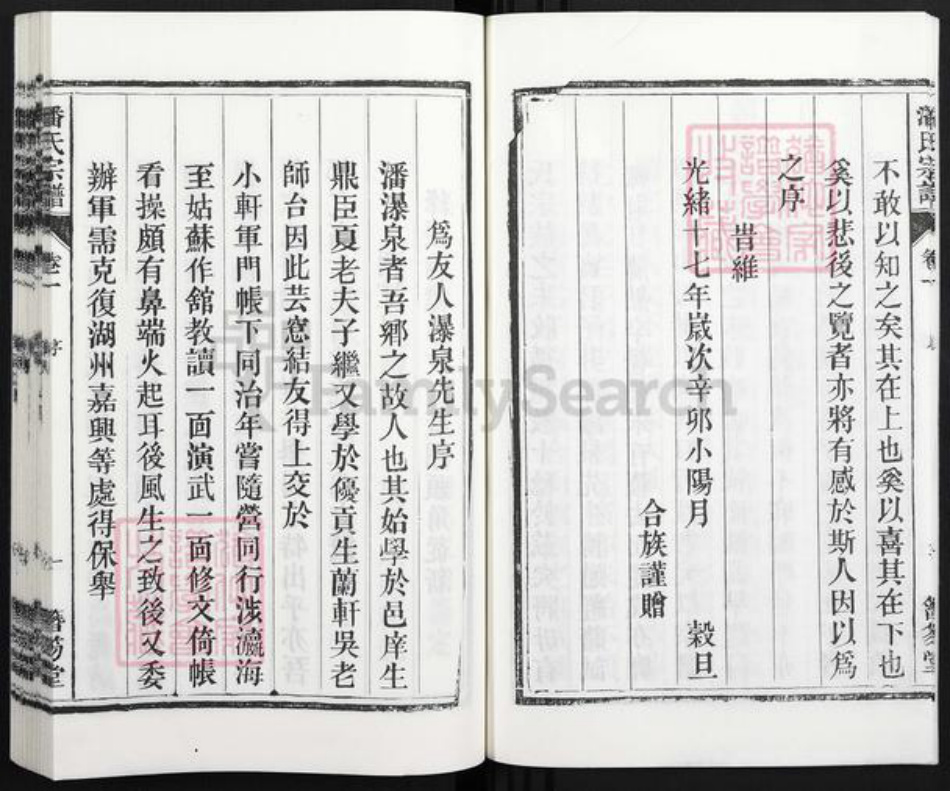 潘氏宗譜
卷一
不敢以知之矣其在上也奚以喜其在下也
奚以悲後之覽者亦將有感於斯人因以爲
之序
旹維
光緒十七年歲次辛卯小陽月　穀旦
合族謹贈
爲友人瀑泉先生序
潘瀑泉者吾鄉之故人也其始學於邑庠生
鼎臣夏老夫子繼又學於優貢生蘭軒吳老
師台因此芸窻結友得上交於
小軒軍門帳下同治年嘗隨營同行涉瀛海
至姑蘇作舘教讀一面演武一面修文倚帳
看操頗有鼻端火起耳後風生之致後又委
辦軍需克復湖州嘉興等處得保舉
潘氏宗譜
卷一
序
一
FamilySearch